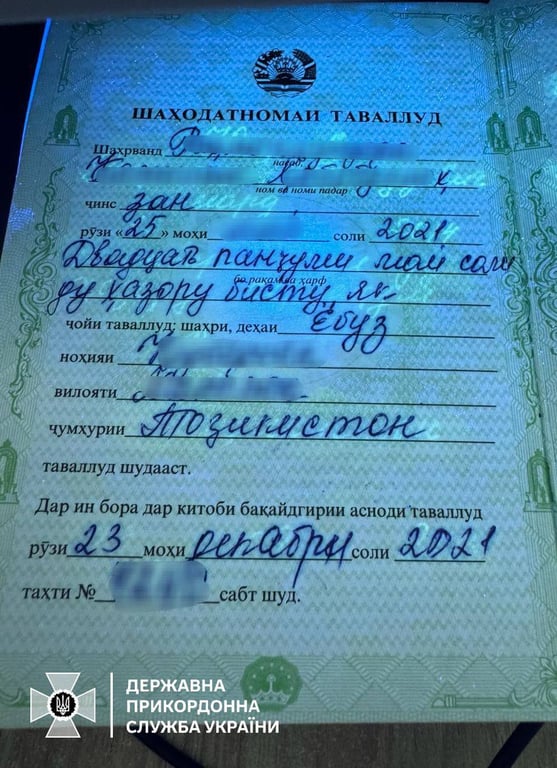 ШАҲОДАТНОМАИ ТАВАЛЛУД
Шаҳрванд
насаб
ном ва номи падар
ҷинс зан
рӯзи «25» моҳи соли 2021
Двадцат панҷуми май соли
бо рақам ва ҳарф
ду ҳазору бисту як
ҷойи таваллуд: шаҳри, деҳаи Ёбуз
ноҳияи
вилояти
ҷумҳурии Тоҷикистон
таваллуд шудааст.
Дар ин бора дар китоби бақайдгирии асноди таваллуд
рӯзи 23 моҳи декабри соли 2021
таҳти № сабт шуд.
ДЕРЖАВНА
ПРИКОРДОННА
СЛУЖБА УКРАЇНИ